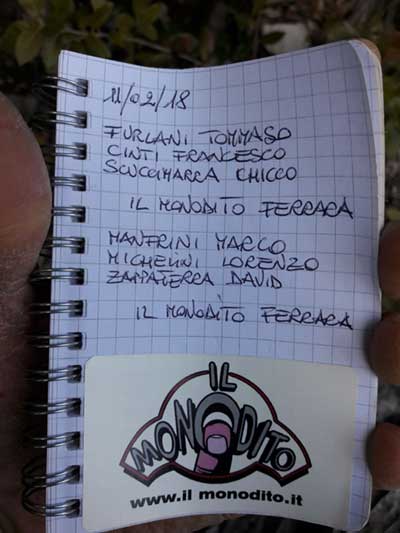 11/02/18
FURLANI TOMMASO
CINTI FRANCESCO
SCUCCIMARRA CHICCO
IL MONODITO FERRARA
MANFRINI MARCO
MICHELINI LORENZO
ZAPPATERRA DAVID
IL MONODITO FERRARA
IL
MONODITO
www.il monodito.it